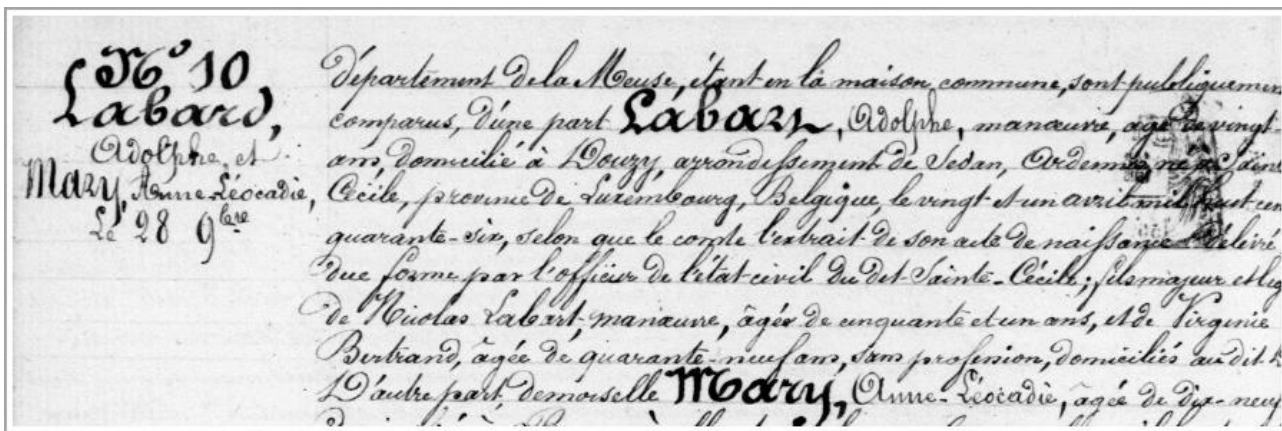 N.º 10
Labard,
Adolphe, et
Mary, Anne-Léocadie,
Le 28 9bre
département de la Meuse, étant en la maison commune, sont publiquemen
comparus, d'une part Labart, Adolphe, manœuvre, âgé de vingt
ans, domicilié à Douzy, arrondissement de Sedan, Ardennes, né à Sain
Cécile, province de Luxembourg, Belgique, le vingt et un avril mil huit cen
quarante-six, selon que le comte l'extrait de son acte de naissance délivré
due forme par l'officier de l'état civil du dit Sainte-Cécile; fils majeur et lég
de Nicolas Labart, manœuvre, âgés de cinquante et un ans, et de Virginie
Bertrand, âgée de quarante-neuf ans, sans profession, domiciliés au dit
D'autre part demoiselle Mary, Anne-Léocadie, âgée de dix-neuf